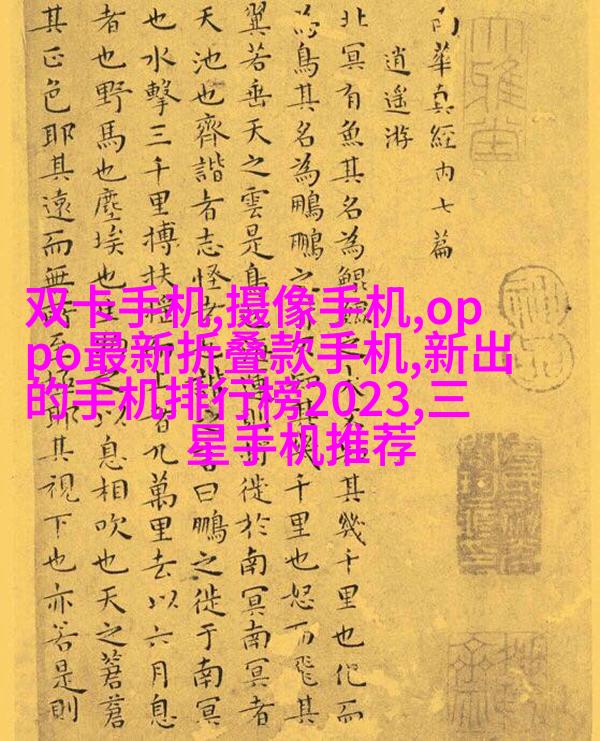 南華真經內七篇
逍遙游
北冥有魚其名為鯤之大其幾千里也化而
為鳥其名為鵬鵬之知其千里也怒而飛其
翼若垂天之雲是鳥也運則將徙於南冥南冥者
天池也齊諧者志怪者諧之言曰鵬之徙于南冥
也水擊三千里搏扶搖上者九萬里去以六月息
者也野馬也塵埃也生之以息相吹也天之蒼蒼
其正色耶其遠而無所至極耶其視下也亦若是則
双卡手机,摄像手机,op
po最新折叠款手机,新出
的手机排行榜2023,三
星手机推荐